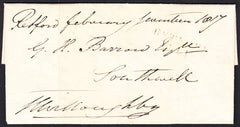 Retford february seventeen 1837
G. H. Barrow Esqre
Southwell
Willoughby